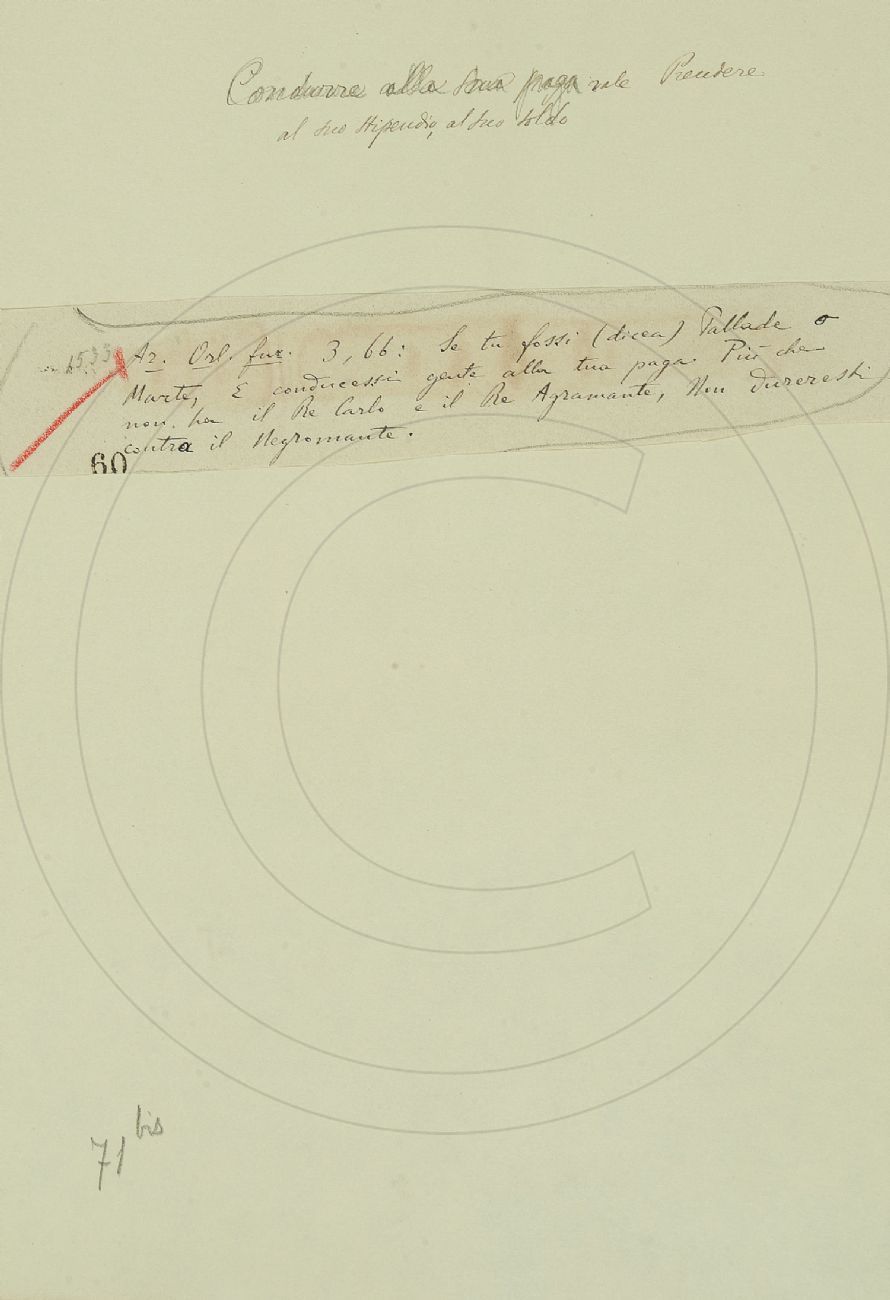 Condurre alla sua paga vale Prendere
al suo stipendio, al suo soldo
Ar. Orl. fur. 3, 66: Se tu fossi (dicea) Pallade o
Marte, E conducessi gente alla tua paga Più che
non ha il Re Carlo e il Re Agramante, Non dureresti
contra il Negromante.
60
71 bis